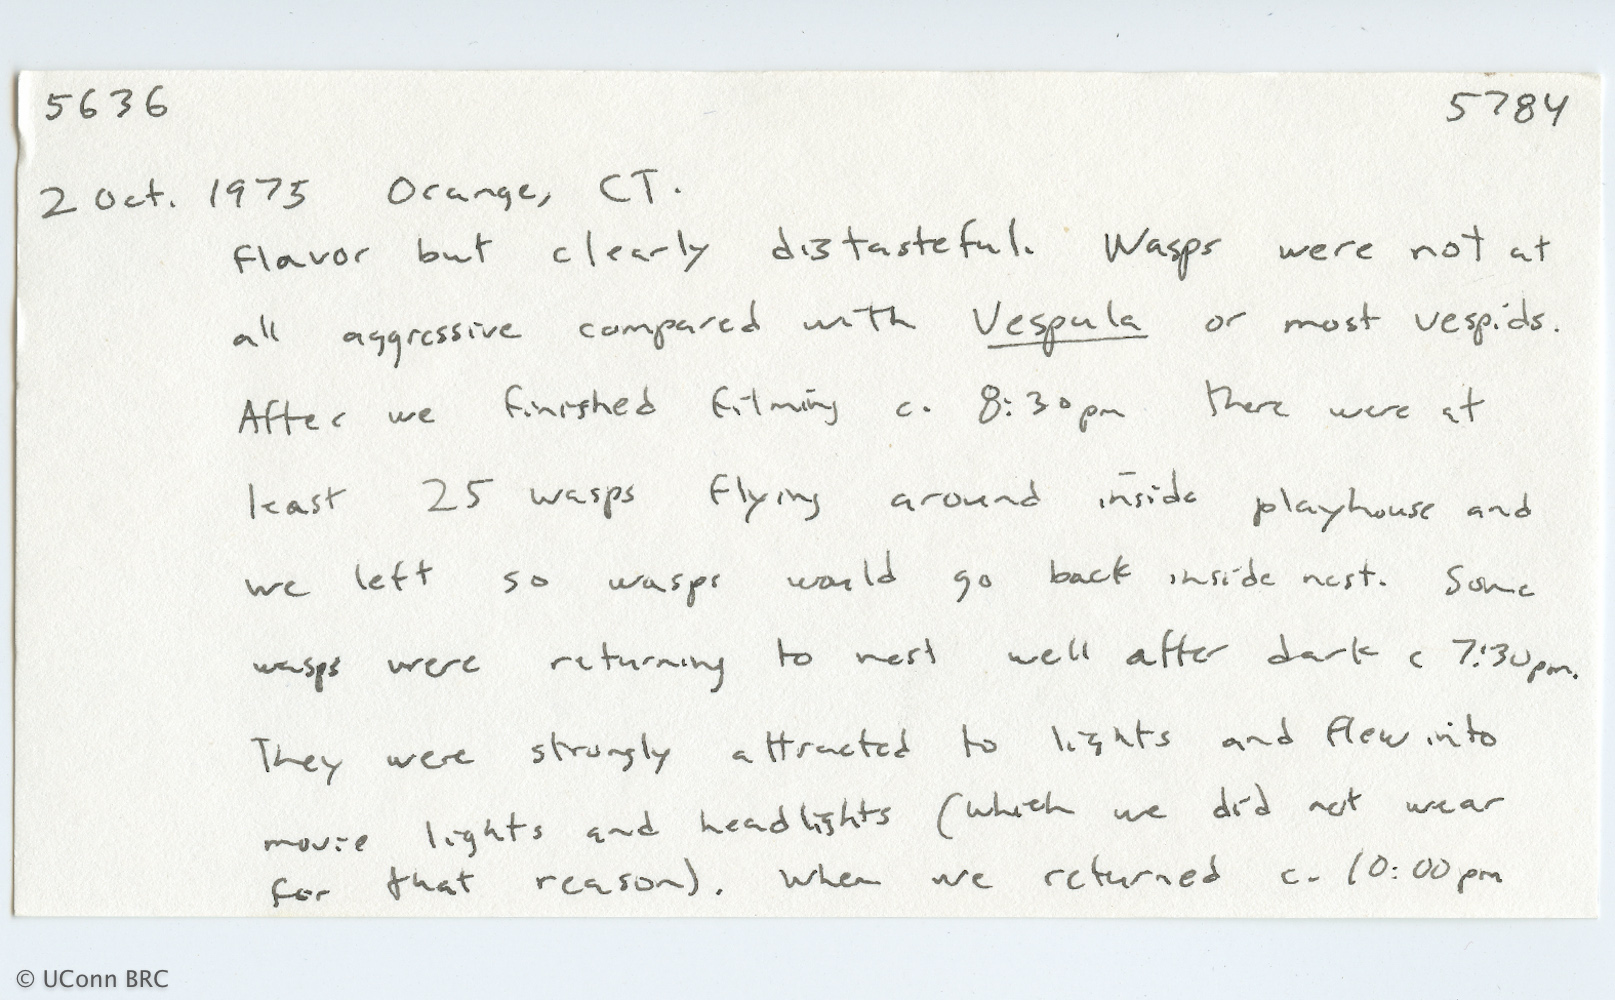 5636 5784
2 Oct. 1975 Orange, CT.
flavor but clearly distasteful. Wasps were not at
all aggressive compared with Vespula or most vespids.
After we finished filming c. 8:30pm there were at
least 25 wasps flying around inside playhouse and
we left so wasps would go back inside nest. Some
wasps were returning to nest well after dark c 7:30pm.
They were strongly attracted to lights and flew into
movie lights and headlights (which we did not wear
for that reason). When we returned c. 10:00pm
© UConn BRC